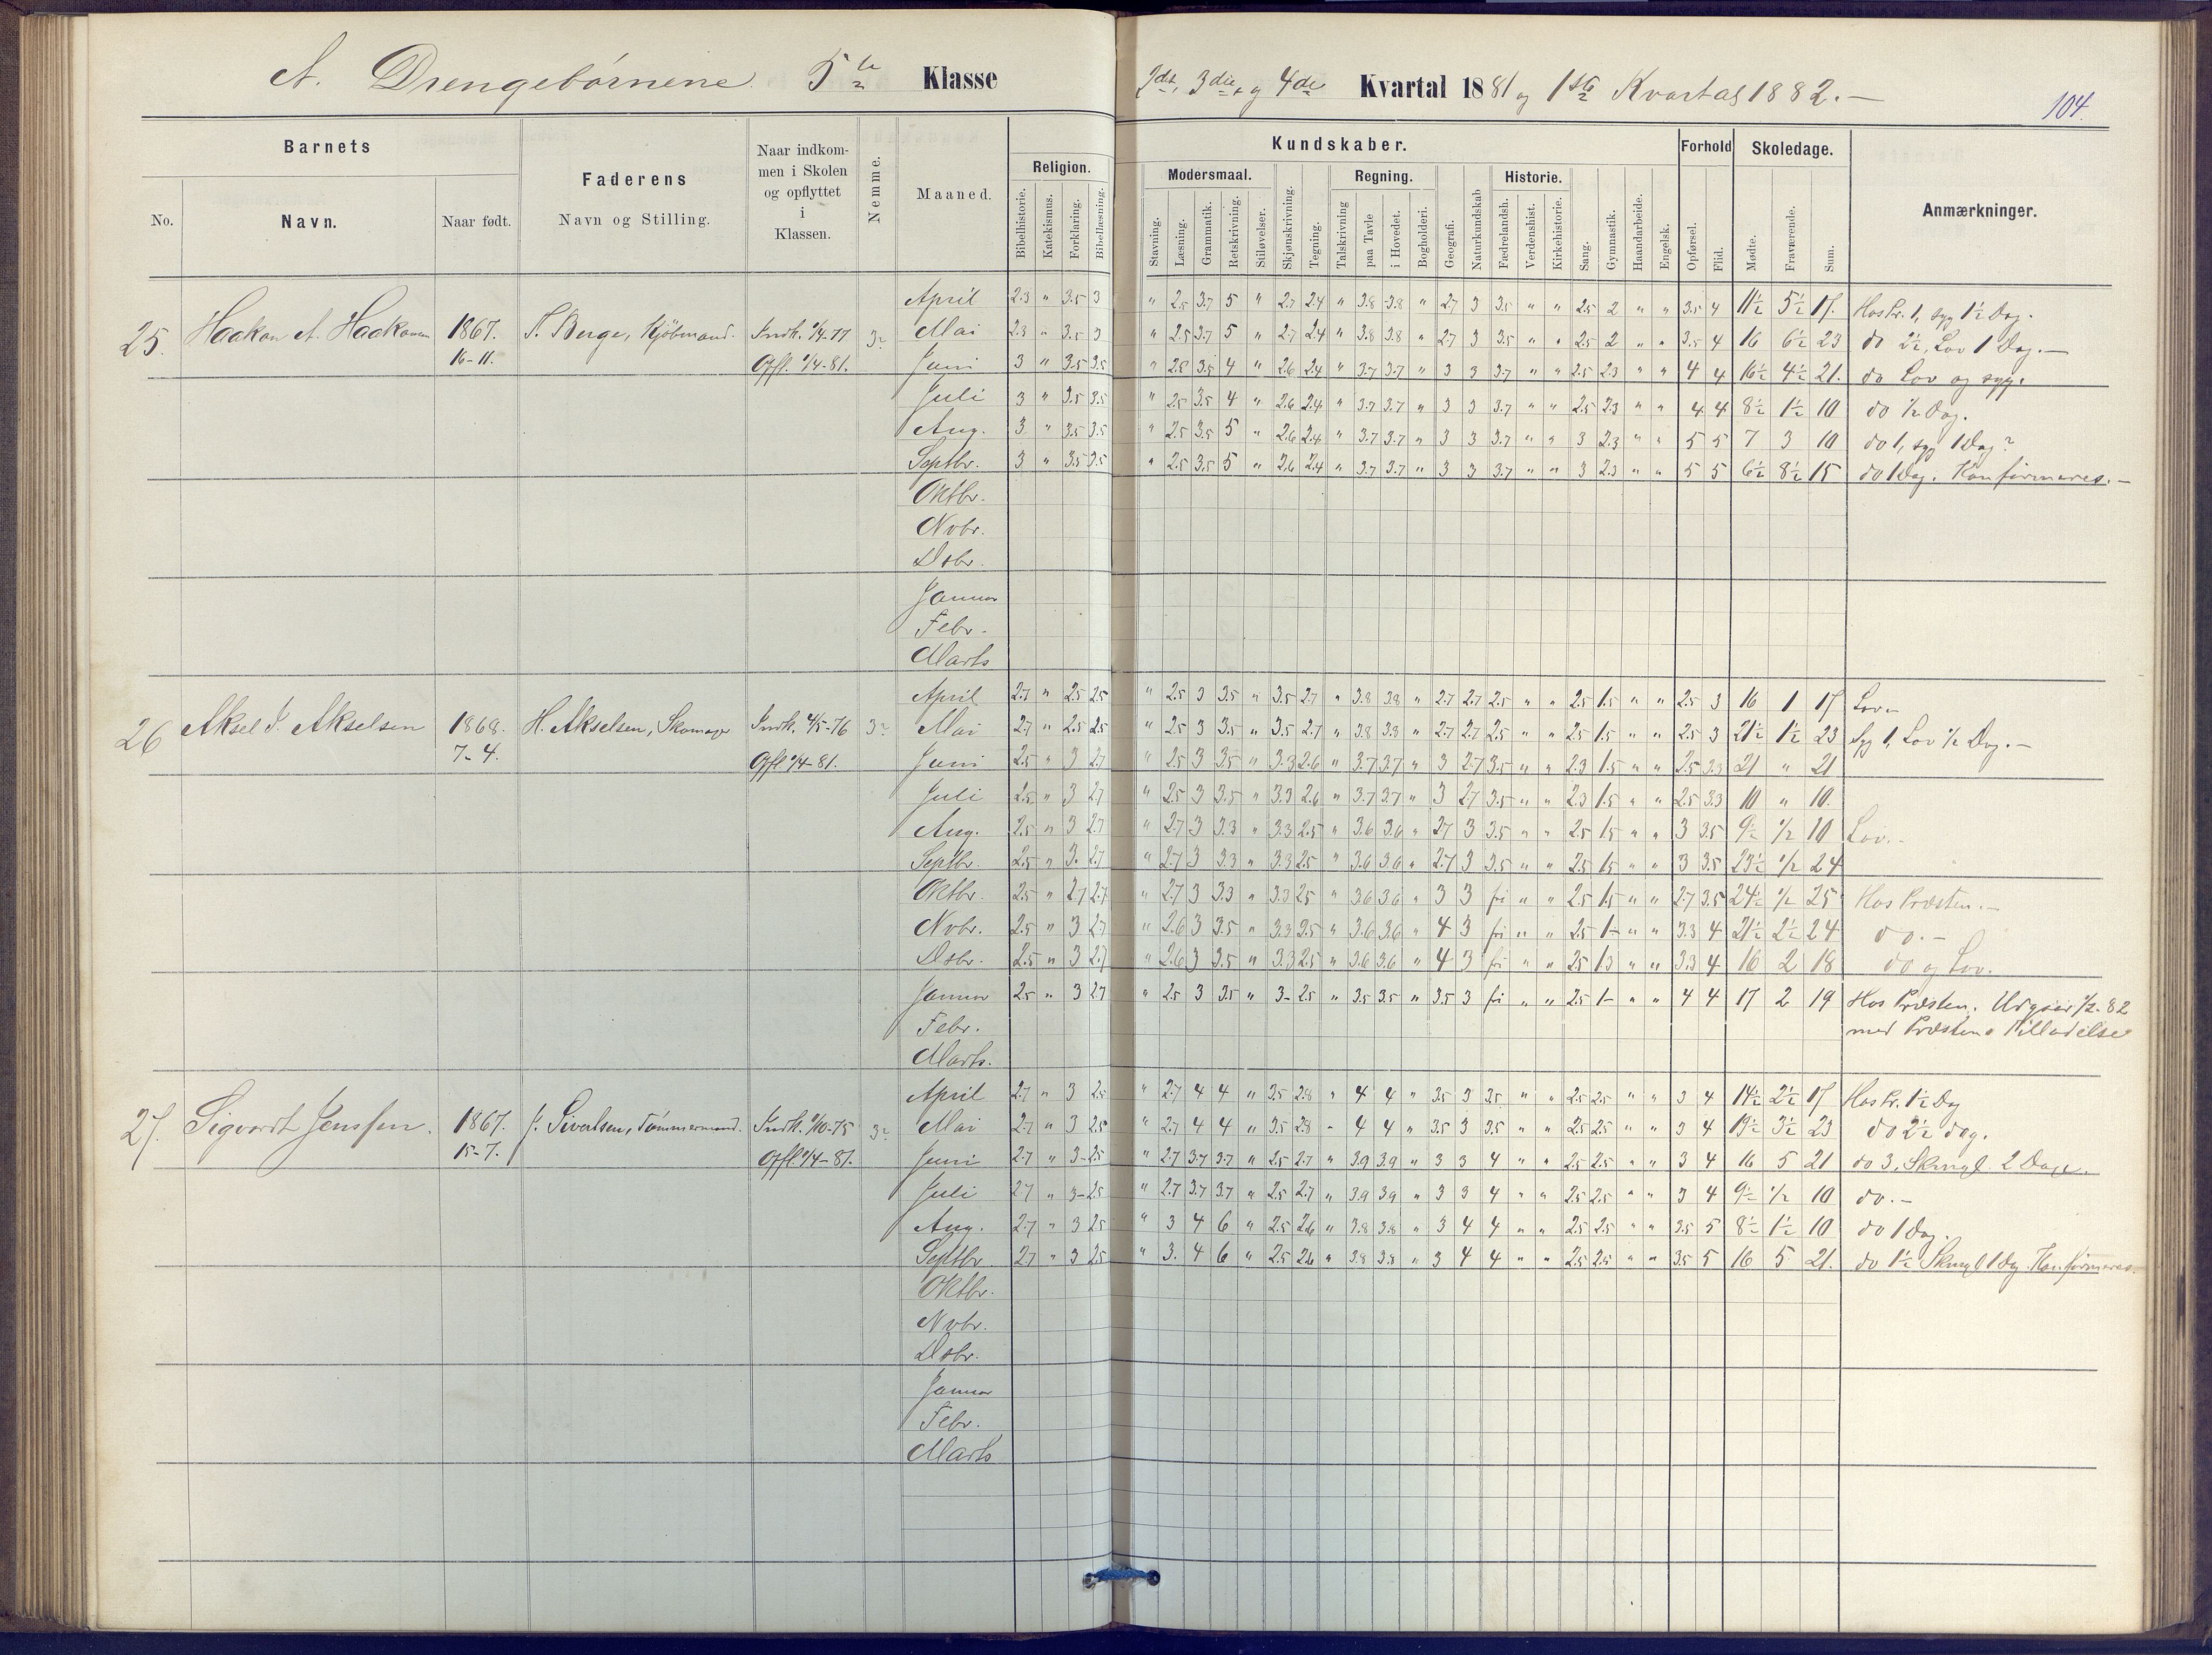 A. Drengebörnene. 5te Klasse 2det, 3die og 4de Kvartal 1881 og 1ste Kvartal 1882.—
104.
Barnets
No. Navn. Naar født.
Faderens
Navn og Stilling.
Naar indkom-
men i Skolen
og opflyttet
i
Klassen.
Nemme.
Maaned.
Kundskaber.
Religion.
Bibelhistorie. Katekismus. Forklaring. Bibellæsning.
Modersmaal.
Stavning. Læsning. Grammatik. Retskrivning. Stiløvelser. Skjønskrivning. Tegning.
Regning.
Talskrivning paa Tavle i Hovedet. Bogholderi. Geografi. Naturkundskab
Historie.
Fædrelandsh. Verdenshist. Kirkehistorie. Sang. Gymnastik. Haandarbeide. Engelsk.
Forhold
Opførsel. Flid.
Skoledage.
Mødte. Fraværende. Sum.
Anmærkninger.
April 2.3 " 3.5 3 " 2.5 3.7 5 " 2.7 2.4 " 3.8 3.8 " 2.7 3 3.5 " " 2.5 2 " " 3.5 4 11½ 5½ 17. Hos Pr. 1, syg 1½ Dag.
25. Haakon A. Haakonsen 1867. T. Berge, Kjöbmand. Indk. 1/4-77 3 Mai 2.3 " 3.5 3 " 2.5 3.7 5 " 2.7 2.4 " 3.8 3.8 " 2.7 3 3.5 " " 2.5 2 " " 3.5 4 16 6½ 23 do 2½, Lov 1 Dag.—
16-11. Opfl. 1/4-81. Juni 3 " 3.5 3.5 " 2.5 3.5 4 " 2.6 2.4 " 3.7 3.7 " 3 3 3.7 " " 2.5 2.3 " " 4 4 16½ 4½ 21. do Lov og syg.
Juli 3 " 3.5 3.5 " 2.5 3.5 4 " 2.6 2.4 " 3.7 3.7 " 3 3 3.7 " " 2.5 2.3 " " 4 4 8½ 1½ 10 do ½ Dag.
Aug. 3 " 3.5 3.5 " 2.5 3.5 5 " 2.6 2.4 " 3.7 3.7 " 3 3 3.7 " " 3 2.3 " " 5 5 7 3 10 do 1, syg 1 Dag?
Septbr. 3 " 3.5 3.5 " 2.5 3.5 5 " 2.6 2.4 " 3.7 3.7 " 3 3 3.7 " " 3 2.3 " " 5 5 6½ 8½ 15 do 1 Dag. Konfirmeres.—
Oktbr.
Nvbr.
Dsbr.
Januar
Febr.
Marts
April 2.7 " 2.5 2.5 " 2.5 3 3.5 " 3.5 2.7 " 3.8 3.8 " 2.7 2.7 2.5 " " 2.5 1.5 " " 2.5 3 16 1 17 Lov.
26 Aksel I. Akselsen 1868. H. Akselsen, Skomager Indk. 4/5-76 3 Mai 2.7 " 2.5 2.5 " 2.5 3 3.5 " 3.5 2.7 " 3.8 3.8 " 2.7 2.7 2.5 " " 2.5 1.5 " " 2.5 3 21½ 1½ 23 Syg 1, Lov ½ Dag.—
7-4. Opfl 1/4-81. Juni 2.5 " 3 2.7 " 2.5 3 3.5 " 3.3 2.6 " 3.7 3.7 " 3 2.7 3.5 " " 2.3 1.5 " " 2.5 3.3 21 " 21
Juli 2.5 " 3 2.7 " 2.5 3 3.5 " 3.3 2.6 " 3.7 3.7 " 3 2.7 3.5 " " 2.3 1.5 " " 2.5 3.3 10 " 10.
Aug. 2.5 " 3 2.7 " 2.7 3 3.3 " 3.3 2.5 " 3.6 3.6 " 2.7 3 3.5 " " 2.5 1.5 " " 3 3.5 9½ ½ 10 Lov.
Septbr. 2.5 " 3. 2.7 " 2.7 3 3.3 " 3.3 2.5 " 3.6 3.6 " 2.7 3 3.5 " " 2.5 1.5 " " 3 3.5 23½ ½ 24
Oktbr. 2.5 " 2.7 2.7 " 2.7 3 3.3 " 3.3 2.5 " 3.6 3.6 " 3 3 fri " " 2.5 1.5 " " 2.7 3.5 24½ ½ 25 Hos Præsten.—
Nvbr. 2.5 " 3 2.7 " 2.6 3 3.5 " 3.3 2.5 " 3.6 3.6 " 4 3 fri " " 2.5 1- " " 3.3 4 21½ 2½ 24 do.—
Dsbr. 2.5 " 3 2.7 " 2.6 3 3.5 " 3.3 2.5 " 3.6 3.6 " 4 3 fri " " 2.5 1.3 " " 3.3 4 16 2 18 do og Lov.
Januar 2.5 " 3 2.7 " 2.5 3 3.5 " 3- 2.5 " 3.5 3.5 " 3.5 3 fri " " 2.5 1- " " 4 4 17 2 19 Hos Præsten. Udgaar 1/2-82
Febr. med Præstens Tilladelse
Marts.
April 2.7 " 3 2.5 " 2.7 4 4 " 3.5 2.8 " 4 4 " 3.5 3 3.5 " " 2.5 2.5 " " 3 4 14½ 2½ 17 Hos Pr. 1½ Dag
27. Sigvardt Jenssen. 1867. J. Sivertsen, Tömmermand. Indk. 1/10-75 3 Mai 2.7 " 3 2.5 " 2.7 4 4 " 3.5 2.8 " 4 4 " 3.5 3 3.5 " " 2.5 2.5 " " 3 4 19½ 3½ 23 do 2½ dag.
15-7. Opfl. 1/4-81. Juni 2.7 " 3- 2.5 " 2.7 3.7 3.7 " 2.5 2.7 " 3.9 3.9 " 3 3 4 " " 2.5 2.5 " " 3 4 16 5 21 do 3, Skrngl. 2 Dage.
Juli 2.7 " 3- 2.5 " 2.7 3.7 3.7 " 2.5 2.7 " 3.9 3.9 " 3 3 4 " " 2.5 2.5 " " 3 4 9½ ½ 10 do.—
Aug. 2.7 " 3 2.5 " 3 4 6 " 2.5 2.6 " 3.8 3.8 " 3 4 4 " " 2.5 2.5 " " 3.5 5 8½ 1½ 10 do 1 Dag.
Septbr 2.7 " 3 2.5 " 3. 4 6 " 2.5 2.6 " 3.8 3.8 " 3 4 4 " " 2.5 2.5 " " 3.5 5 16 5 21. do 1½ Skrngl 1 Dag. Konfirmeres.
Oktbr.
Nvbr.
Dsbr.
Januar
Febr.
Marts